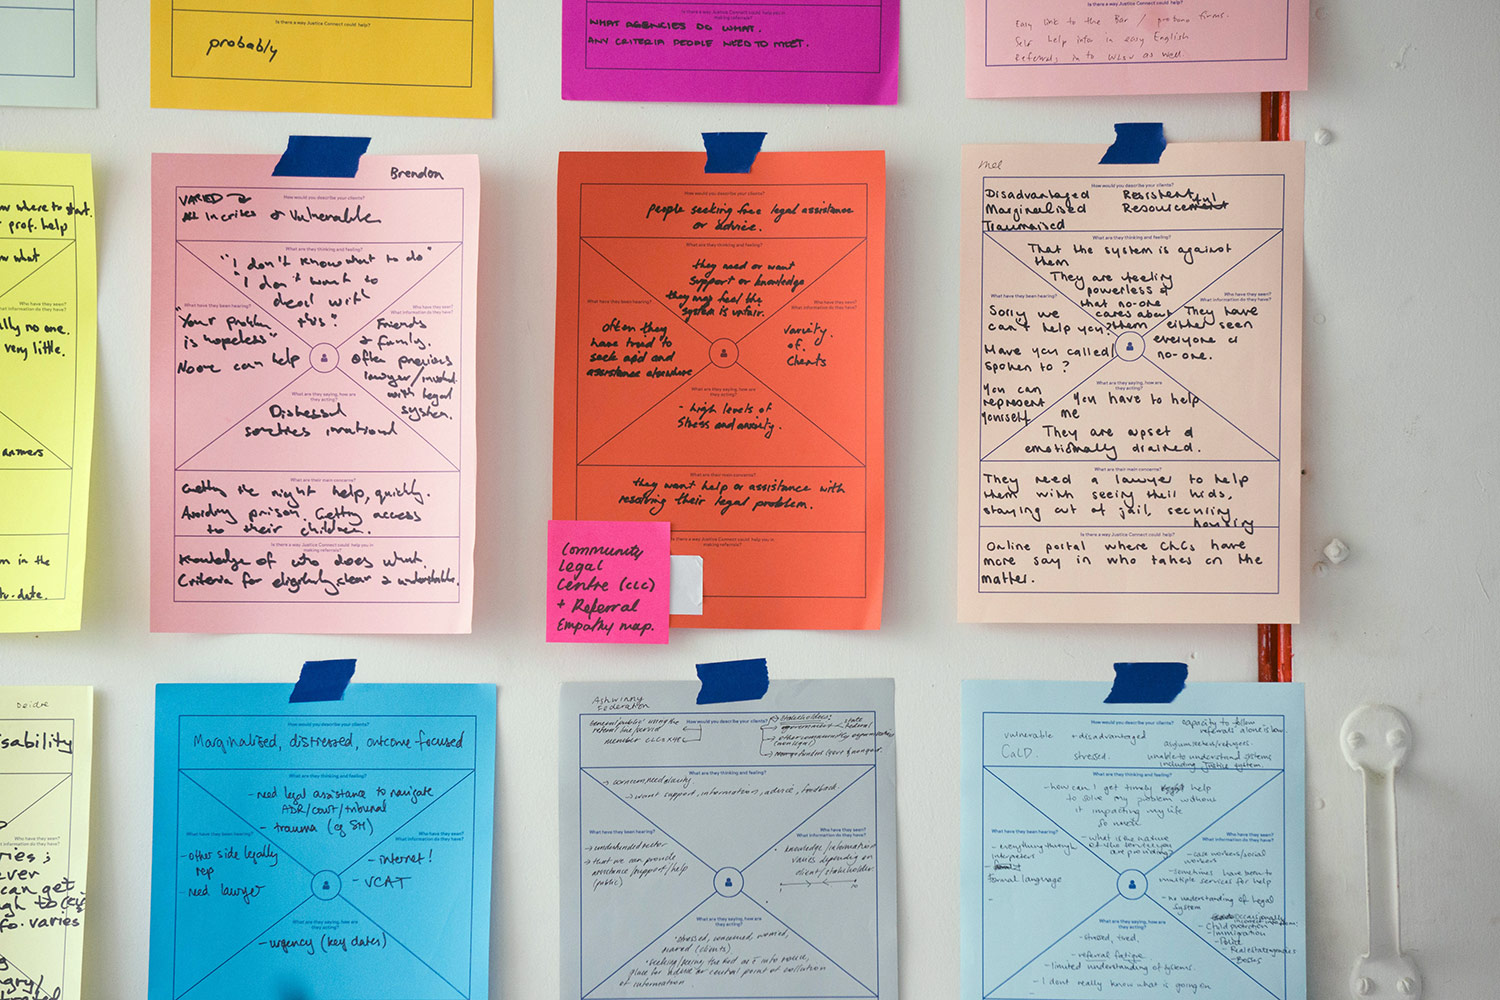 Is there a way Justice Connect could help?
probably
Is there a way Justice Connect could help you in
making referrals?
WHAT AGENCIES DO WHAT.
ANY CRITERIA PEOPLE NEED TO MEET.
Easy link to the Bar / probono firms.
Self help info in easy English
Referrals in to WLSV as well.
where to start.
prof. help
what
Who have they seen?
What information do they have?
no one.
very little.
answers
in the
date.
Brendon
How would you describe your clients?
VARIED
ALL in crises & vulnerable
What are they thinking and feeling?
"I don't know what to do"
"I don't want to
deal with
this"
What have they been hearing?
"Your problem
is hopeless"
No one can help
Who have they seen?
What information do they have?
Friends
& family.
Often previous
lawyer/involved
with legal
system.
What are they saying, how are
they acting?
Distressed
sometimes irrational
What are their main concerns?
Getting the right help, quickly.
Avoiding prison. Getting access
to their children.
Is there a way Justice Connect could help you in
making referrals?
Knowledge of who does what.
Criteria for eligibility clear &
How would you describe your clients?
people seeking free legal assistance
or advice.
What are they thinking and feeling?
they need or want
support or knowledge
they may feel the
system is unfair.
What have they been hearing?
often they
have tried to
seek aid and
assistance elsewhere
Who have they seen?
What information do they have?
variety
of
clients
What are they saying, how are
they acting?
- high levels of
stress and anxiety.
What are their main concerns?
they want help or assistance with
resolving their legal problem.
Is there a way Justice Connect could help you in
making referrals?
Community
Legal
Centre (CLC)
+ Referral
Empathy map.
Mel
How would you describe your clients?
Disadvantaged Resistent
Marginalised Resourceful
Traumatised
What are they thinking and feeling?
That the system is against
them
They are feeling
powerless &
that no-one
cares about
them
What have they been hearing?
Sorry we
can't help you.
Have you called/
spoken to?
You can
represent
yourself
Who have they seen?
What information do they have?
They have
either seen
everyone or
no-one.
What are they saying, how are
they acting?
You have to help
me
They are upset &
emotionally drained.
What are their main concerns?
They need a lawyer to help
them with seeing their kids,
staying out of jail, securing
housing
Is there a way Justice Connect could help?
Online portal where CLCs have
more say in who takes on the
matter.
Deidre
disability
varies
How would you describe your clients?
Marginalised, distressed, outcome-focused
What are they thinking and feeling?
- need legal assistance to navigate
ADR/court/tribunal
- trauma (eg SH)
What have they been hearing?
- other side legally
rep
- need lawyer
Who have they seen?
What information do they have?
- internet!
- VCAT
What are they saying, how are
they acting?
- urgency (key dates)
Ashwinny
Federation
How would you describe your clients?
general public using the
referral line/service
member CLCs
stakeholders:
government
state
federal
other community organisations
(non legal)
What are they thinking and feeling?
→ want support, information, advice, feedback
What have they been hearing?
→ underfunded sector
→ that we can provide
assistance/support/help
(public)
Who have they seen?
What information do they have?
knowledge/information
varies depending on
client/stakeholder
What are they saying, how are
they acting?
stressed, concerned, worried,
scared (clients)
of information
How would you describe your clients?
vulnerable + disadvantaged
CaLD stressed.
capacity to follow
referrals alone is low
asylum seekers/refugees.
unable to understand systems
including justice system.
What are they thinking and feeling?
- how can I get timely help
to solve my problem without
it impacting my life
so much
- what is the nature
of the service you
are providing?
What have they been hearing?
- everything through
interpreters
formal language
Who have they seen?
What information do they have?
- case workers/social
workers
- sometimes have been to
multiple services for help
- no understanding of legal
system
- Child protection
- Immigration
- Police
- Real estate agencies
- Bosses
What are they saying, how are
they acting?
- stressed, tired,
- referral fatigue
- limited understanding of systems.
- I dont really know what is going on